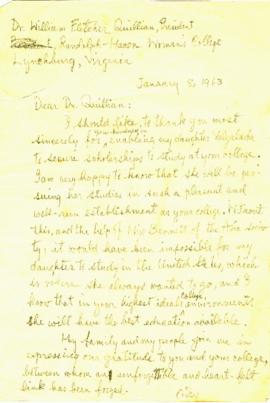 Dr. William Fletcher Quillian, President
Randolph-Macon Woman's College
Lynchburg, Virginia
January 8, 1963
Dear Dr. Quillian:
I should like to thank you most
sincerely for enabling my daughter
to secure scholarships to study at your college.
I am very happy to know that she will be per-
suing her studies in such a pleasant and
well-run establishment as your college. Without
this, and the help of Miss Bennett of the
ty; it would have been impossible for my
daughter to study in the United States, which
is where she always wanted to go, and I
know that in your highest ideals college, environment
she will have the best education available.
My family and my people join me in
expressing our gratitude to you and your college,
between whom an unforgettable and heart-felt
link has been forged.